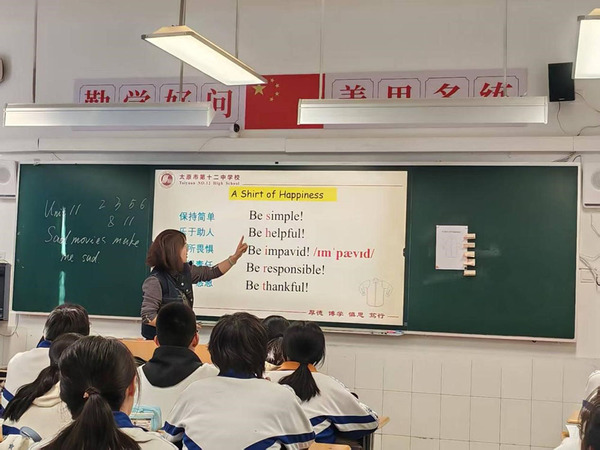 勤学好问
善思名练
太原市第十二中学校
Taiyuan NO.12 High School
A Shirt of Happiness
保持简单 Be simple!
乐于助人 Be helpful!
所畏惧 Be impavid! /ɪmˈpævɪd/
责任 Be responsible!
Be thankful!
厚德 博学 慎思 笃行
Unit 11 2 3 5 6
8 11
Sad movies make
me sad